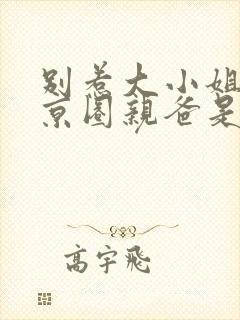 别惹大小姐
京圈亲爸是
高宇飛